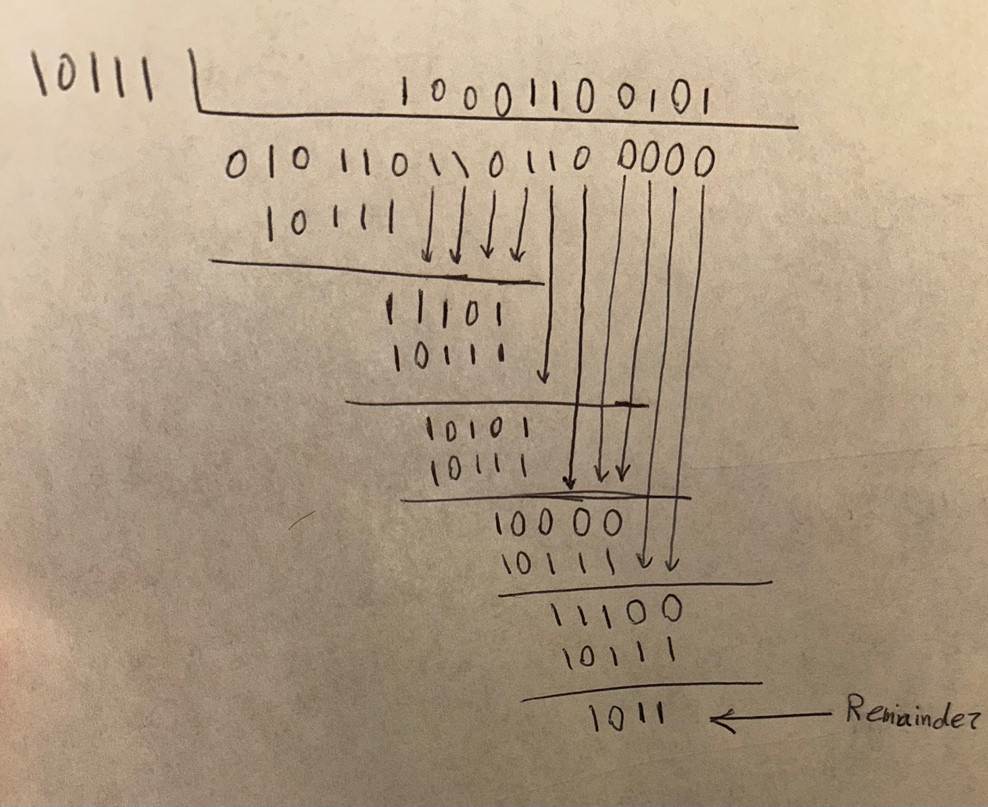 10111 10001100101
010110110110 0000
10111
11101
10111
10101
10111
10000
10111
11100
10111
1011 ← Remainder